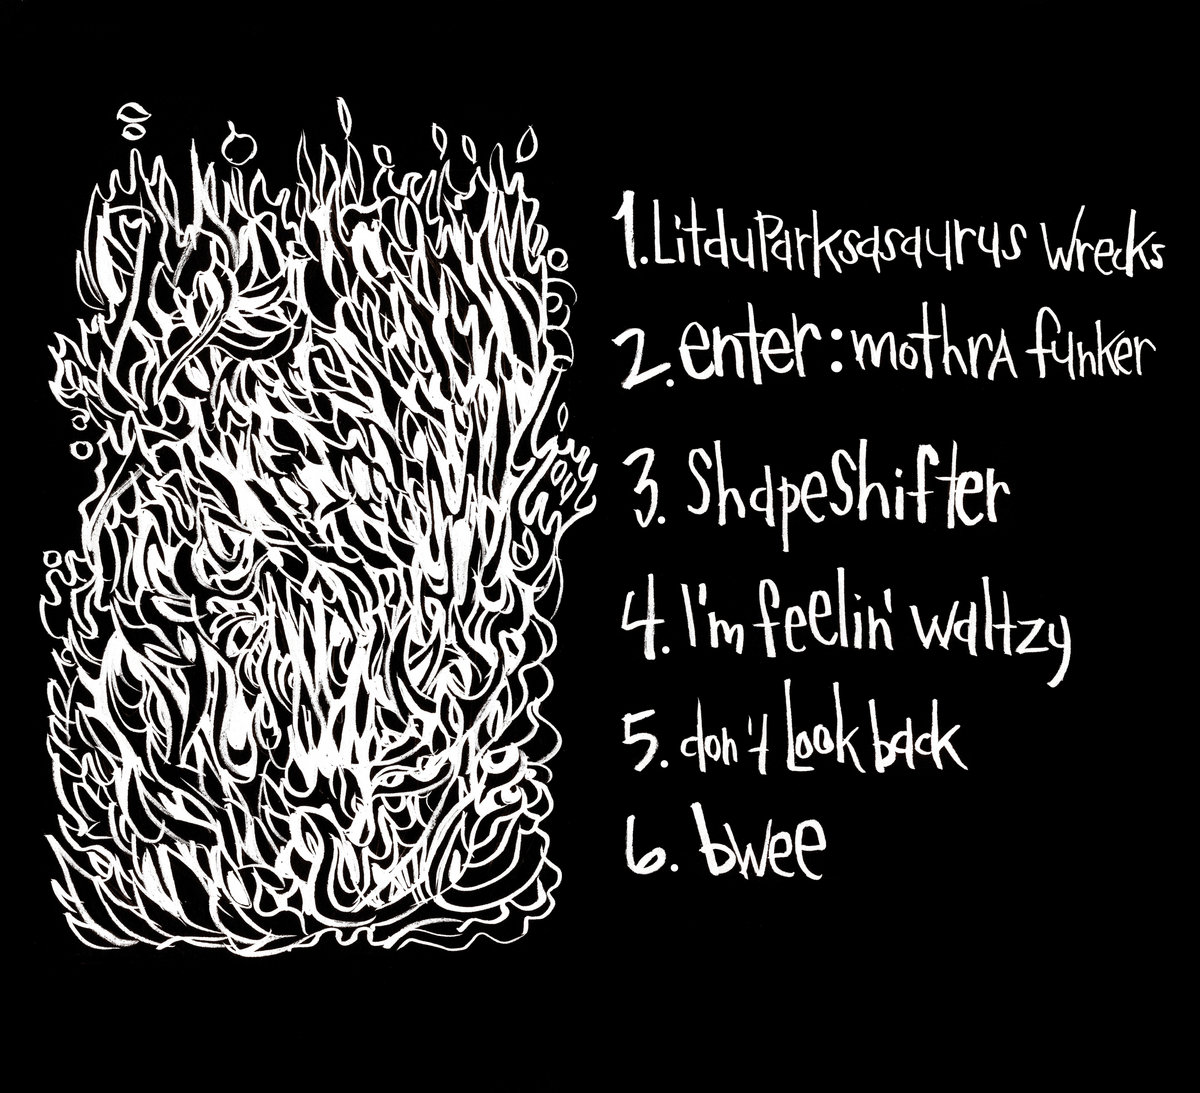 1. LitduParksasaurus Wrecks
2. enter: mothrA funker
3. ShapeShifter
4. I'm feelin' waltzy
5. don't look back
6. bwee